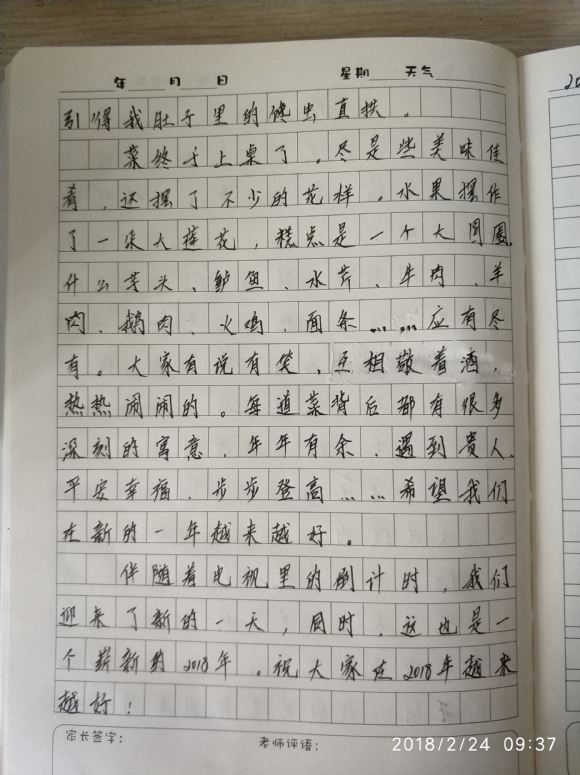 年 月 日 星期 天气
引得我肚子里的馋虫直拱。
菜终于上桌了。尽是些美味佳
肴，还摆了不少的花样。水果摆作
了一朵大莲花，糕点是一个大圆圈。
什么芋头、鲈鱼、水芹、牛肉、羊
肉、鹅肉、火鸡、面条……应有尽
有。大家有说有笑，互相敬着酒，
热热闹闹的。每道菜背后都有很多
深刻的寓意，年年有余、遇到贵人、
平安幸福、步步登高……希望我们
在新的一年越来越好。
伴随着电视里的倒计时，我们
迎来了新的一天，同时，这也是一
个崭新的2018年。祝大家在2018年越来
越好！
家长签字： 老师评语：
2018/2/24 09:37